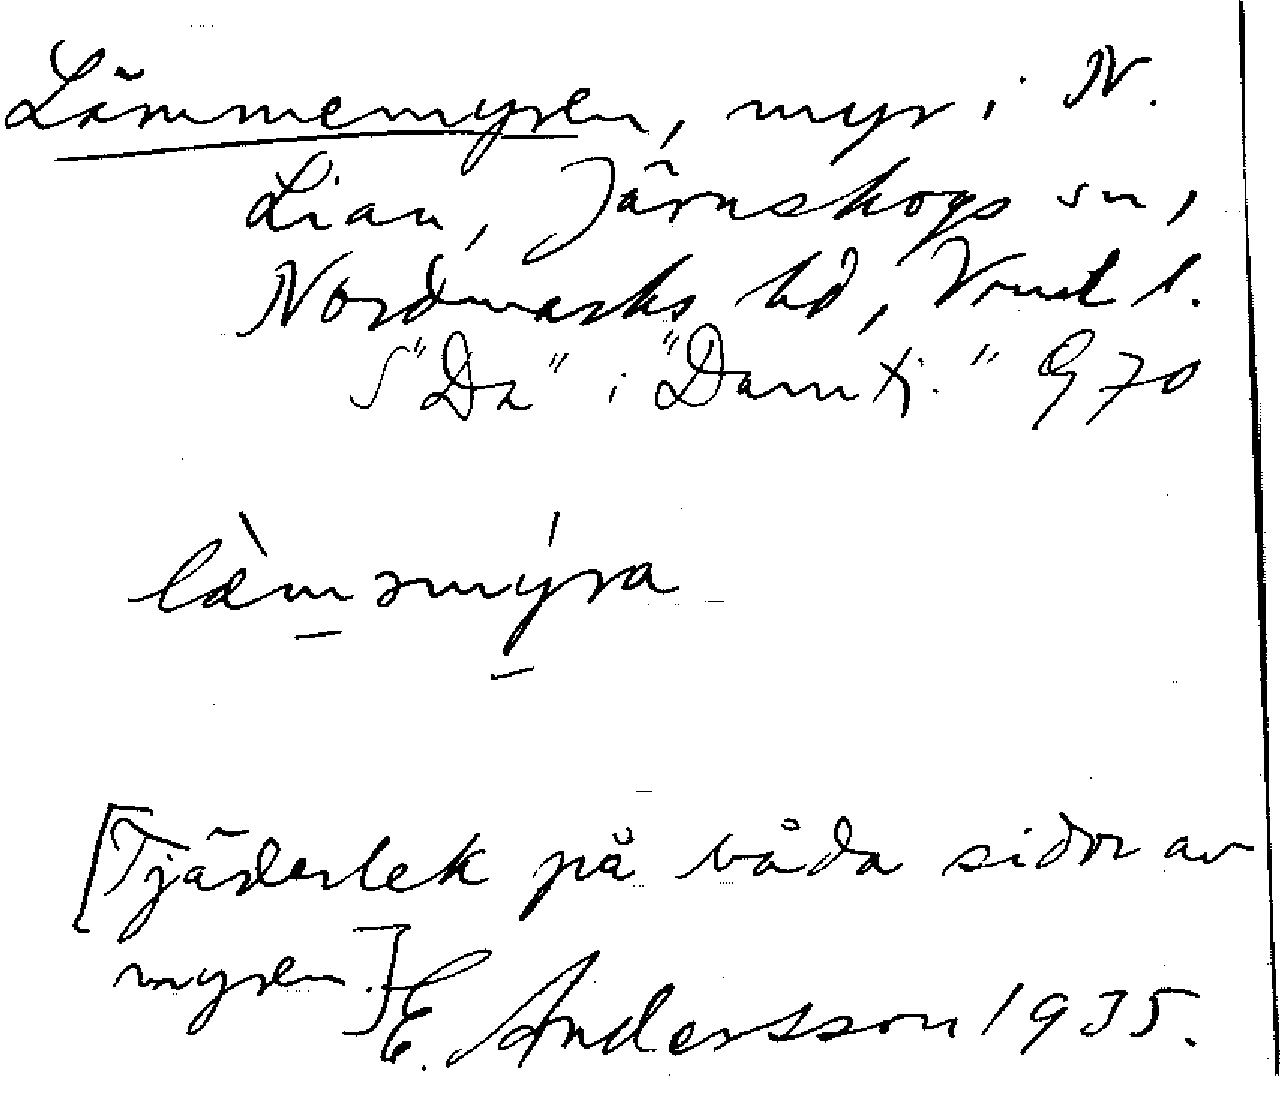 Lämmemyren, myr i N.
Lian, Järnskogs sn,
Nordmarks hd, Vrml l.
S "Da" i "Damtj." G 70
læ̀mәmýra
[Tjäderlek på båda sidor av
myren.]
E. Andersson 1935.